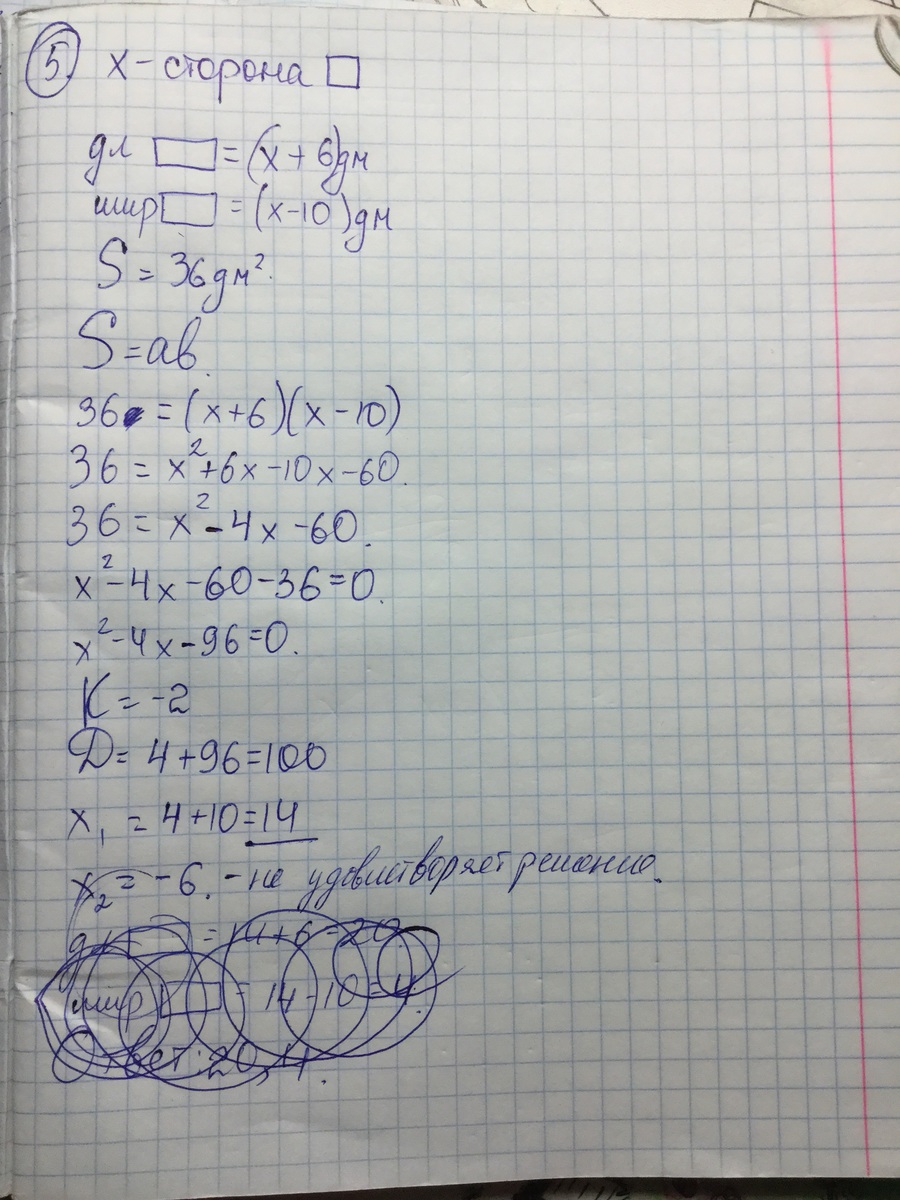 5. х - сторона □
дл ▭ = (x + 6) дм
шир ▭ = (x - 10) дм
S = 36 дм².
S = ab.
36 = (x + 6)(x - 10)
36 = x² + 6x - 10x - 60.
36 = x² - 4x - 60.
x² - 4x - 60 - 36 = 0.
x² - 4x - 96 = 0.
K = -2
D = 4 + 96 = 100
x₁ = 4 + 10 = 14
x₂ = -6. - не удовлетворяет решению.
дл ▭ = 14 + 6 = 20
шир ▭ = 14 - 10 = 4.
Ответ: 20, 4.